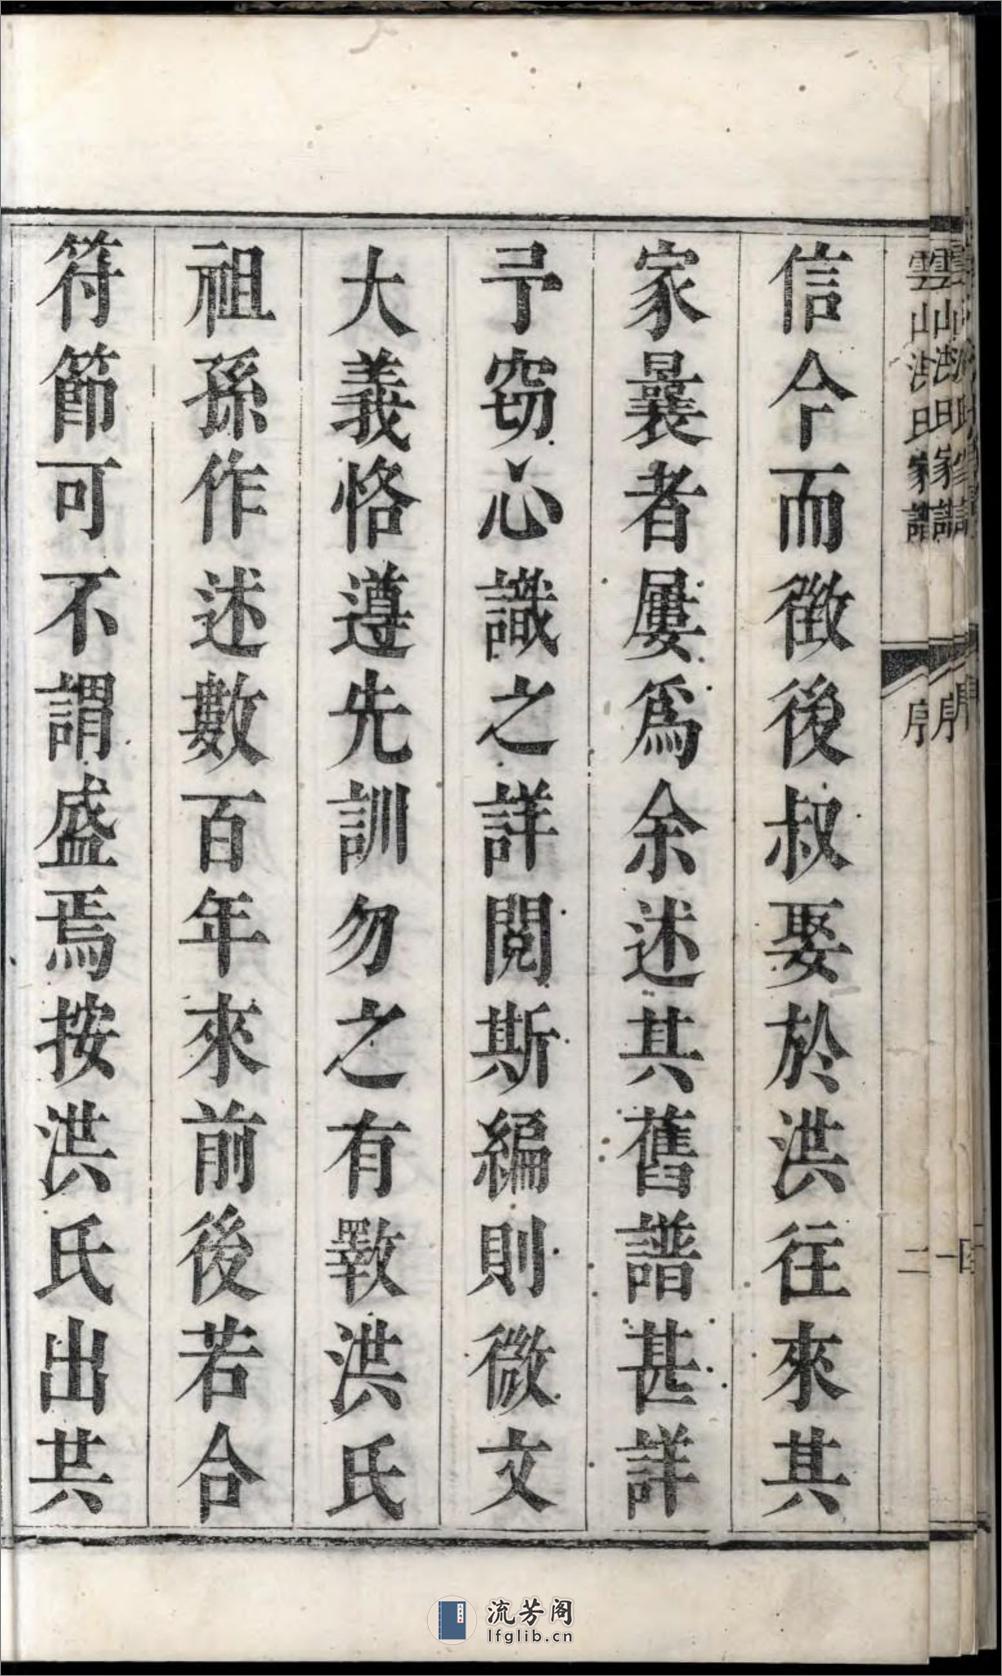 信今而徵後叔娶於洪往來其
家曩者屢爲余述其舊譜甚詳
予窃心識之詳閱斯編則微文
大義恪遵先訓勿之有斁洪氏
祖孫作述數百年來前後若合
符節可不謂盛焉按洪氏出共
雲山洪氏家譜
序
二
流芳阁
lfglib.cn